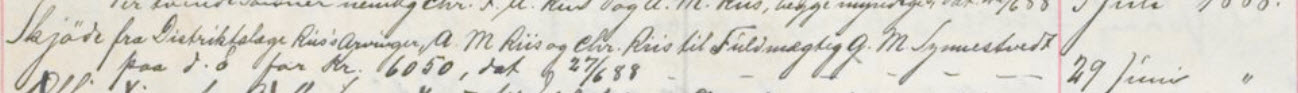 nemlig Chr. F. A. Riis og A. M. Riis, begge myndige, dat. 27/6 88 3 Juli 1888.
Skjöde fra Distriktslæge Riis's Arvinger, A. M Riis og Chr. Riis til Fuldmægtig G. M. Synnestvedt
paa d. E for Kr. 6050, dat 27/6 88 - - - - - - - 29 Juni "